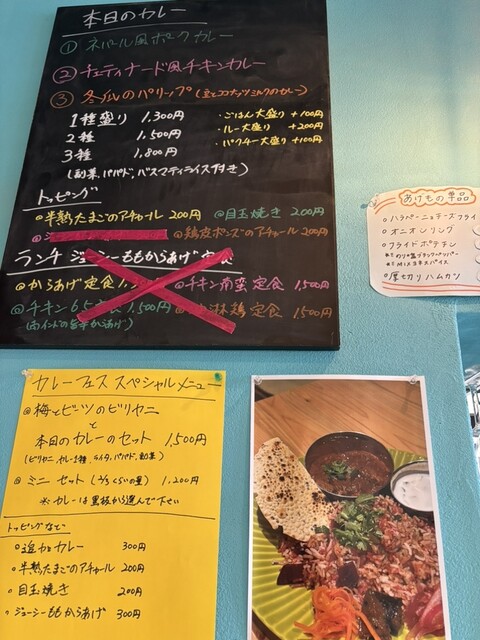 本日のカレー
① ネパール風ポークカレー
② チェティナード風チキンカレー
③ 冬瓜のパリップ(豆とココナッツミルクのカレー)
1種盛り 1,300円
2種 1,500円
3種 1,800円
・ごはん大盛り +100円
・ルー大盛り +200円
・パクチー大盛り +100円
(副菜、パパド、バスマティライス付き)
トッピング
◎半熟たまごのアチャール 200円
◎目玉焼き 200円
◎鶏皮ポンズのアチャール 200円
ランチ ジューシーももからあげ定食
◎からあげ定食
◎チキン南蛮定食 1500円
◎チキン65定食 1,500円
(南インドの旨辛からあげ)
淋鶏定食 1500円
あげもの単品
○ハラペーニョチーズフライ
○オニオンリング
○フライドポテト
○厚切りハムカツ
カレーフェス スペシャルメニュー
◎梅とビーツのビリヤニ
と
本日のカレーのセット 1,500円
◎ミニセット (2/3くらいの量) 1,200円
※カレーは黒板から選んで下さい
トッピングなど
○追加カレー 300円
○半熟たまごのアチャール 200円
○目玉焼き 200円
○ジューシーももからあげ 300円